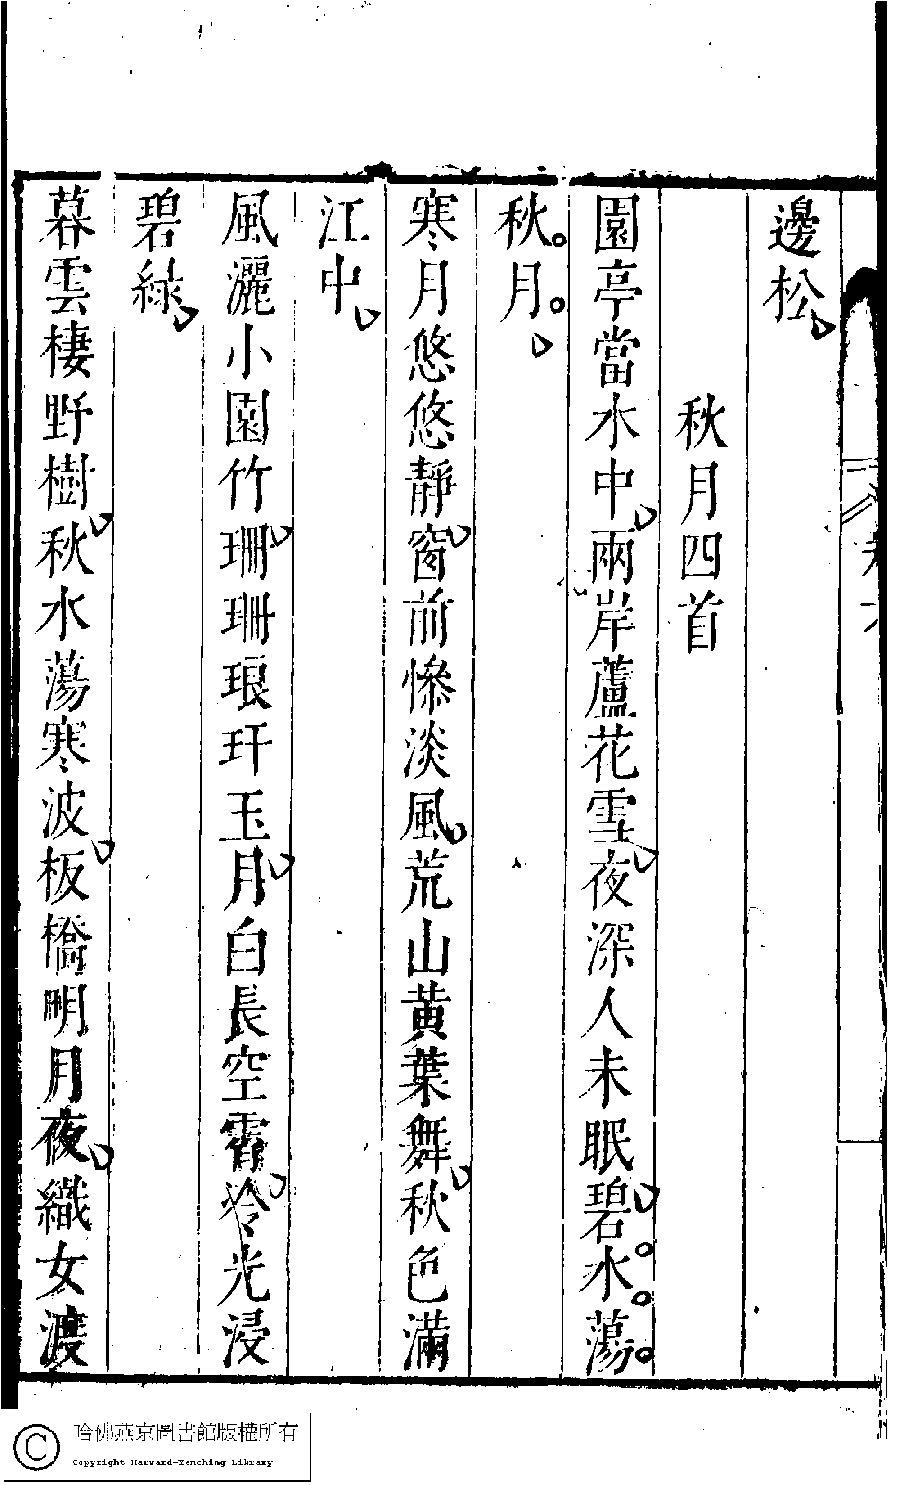 邊松
秋月四首
園亭當水中兩岸蘆花雪夜深人未眠碧水蕩
秋月
寒月悠悠靜窗前慘淡風荒山黃葉舞秋色滿
江中
風灑小園竹珊珊琅玕玉月白長空霽冷光浸
碧綠
暮雲棲野樹秋水蕩寒波板橋明月夜織女渡
哈佛燕京圖書館版權所有
Copyright Harvard-Yenching Library